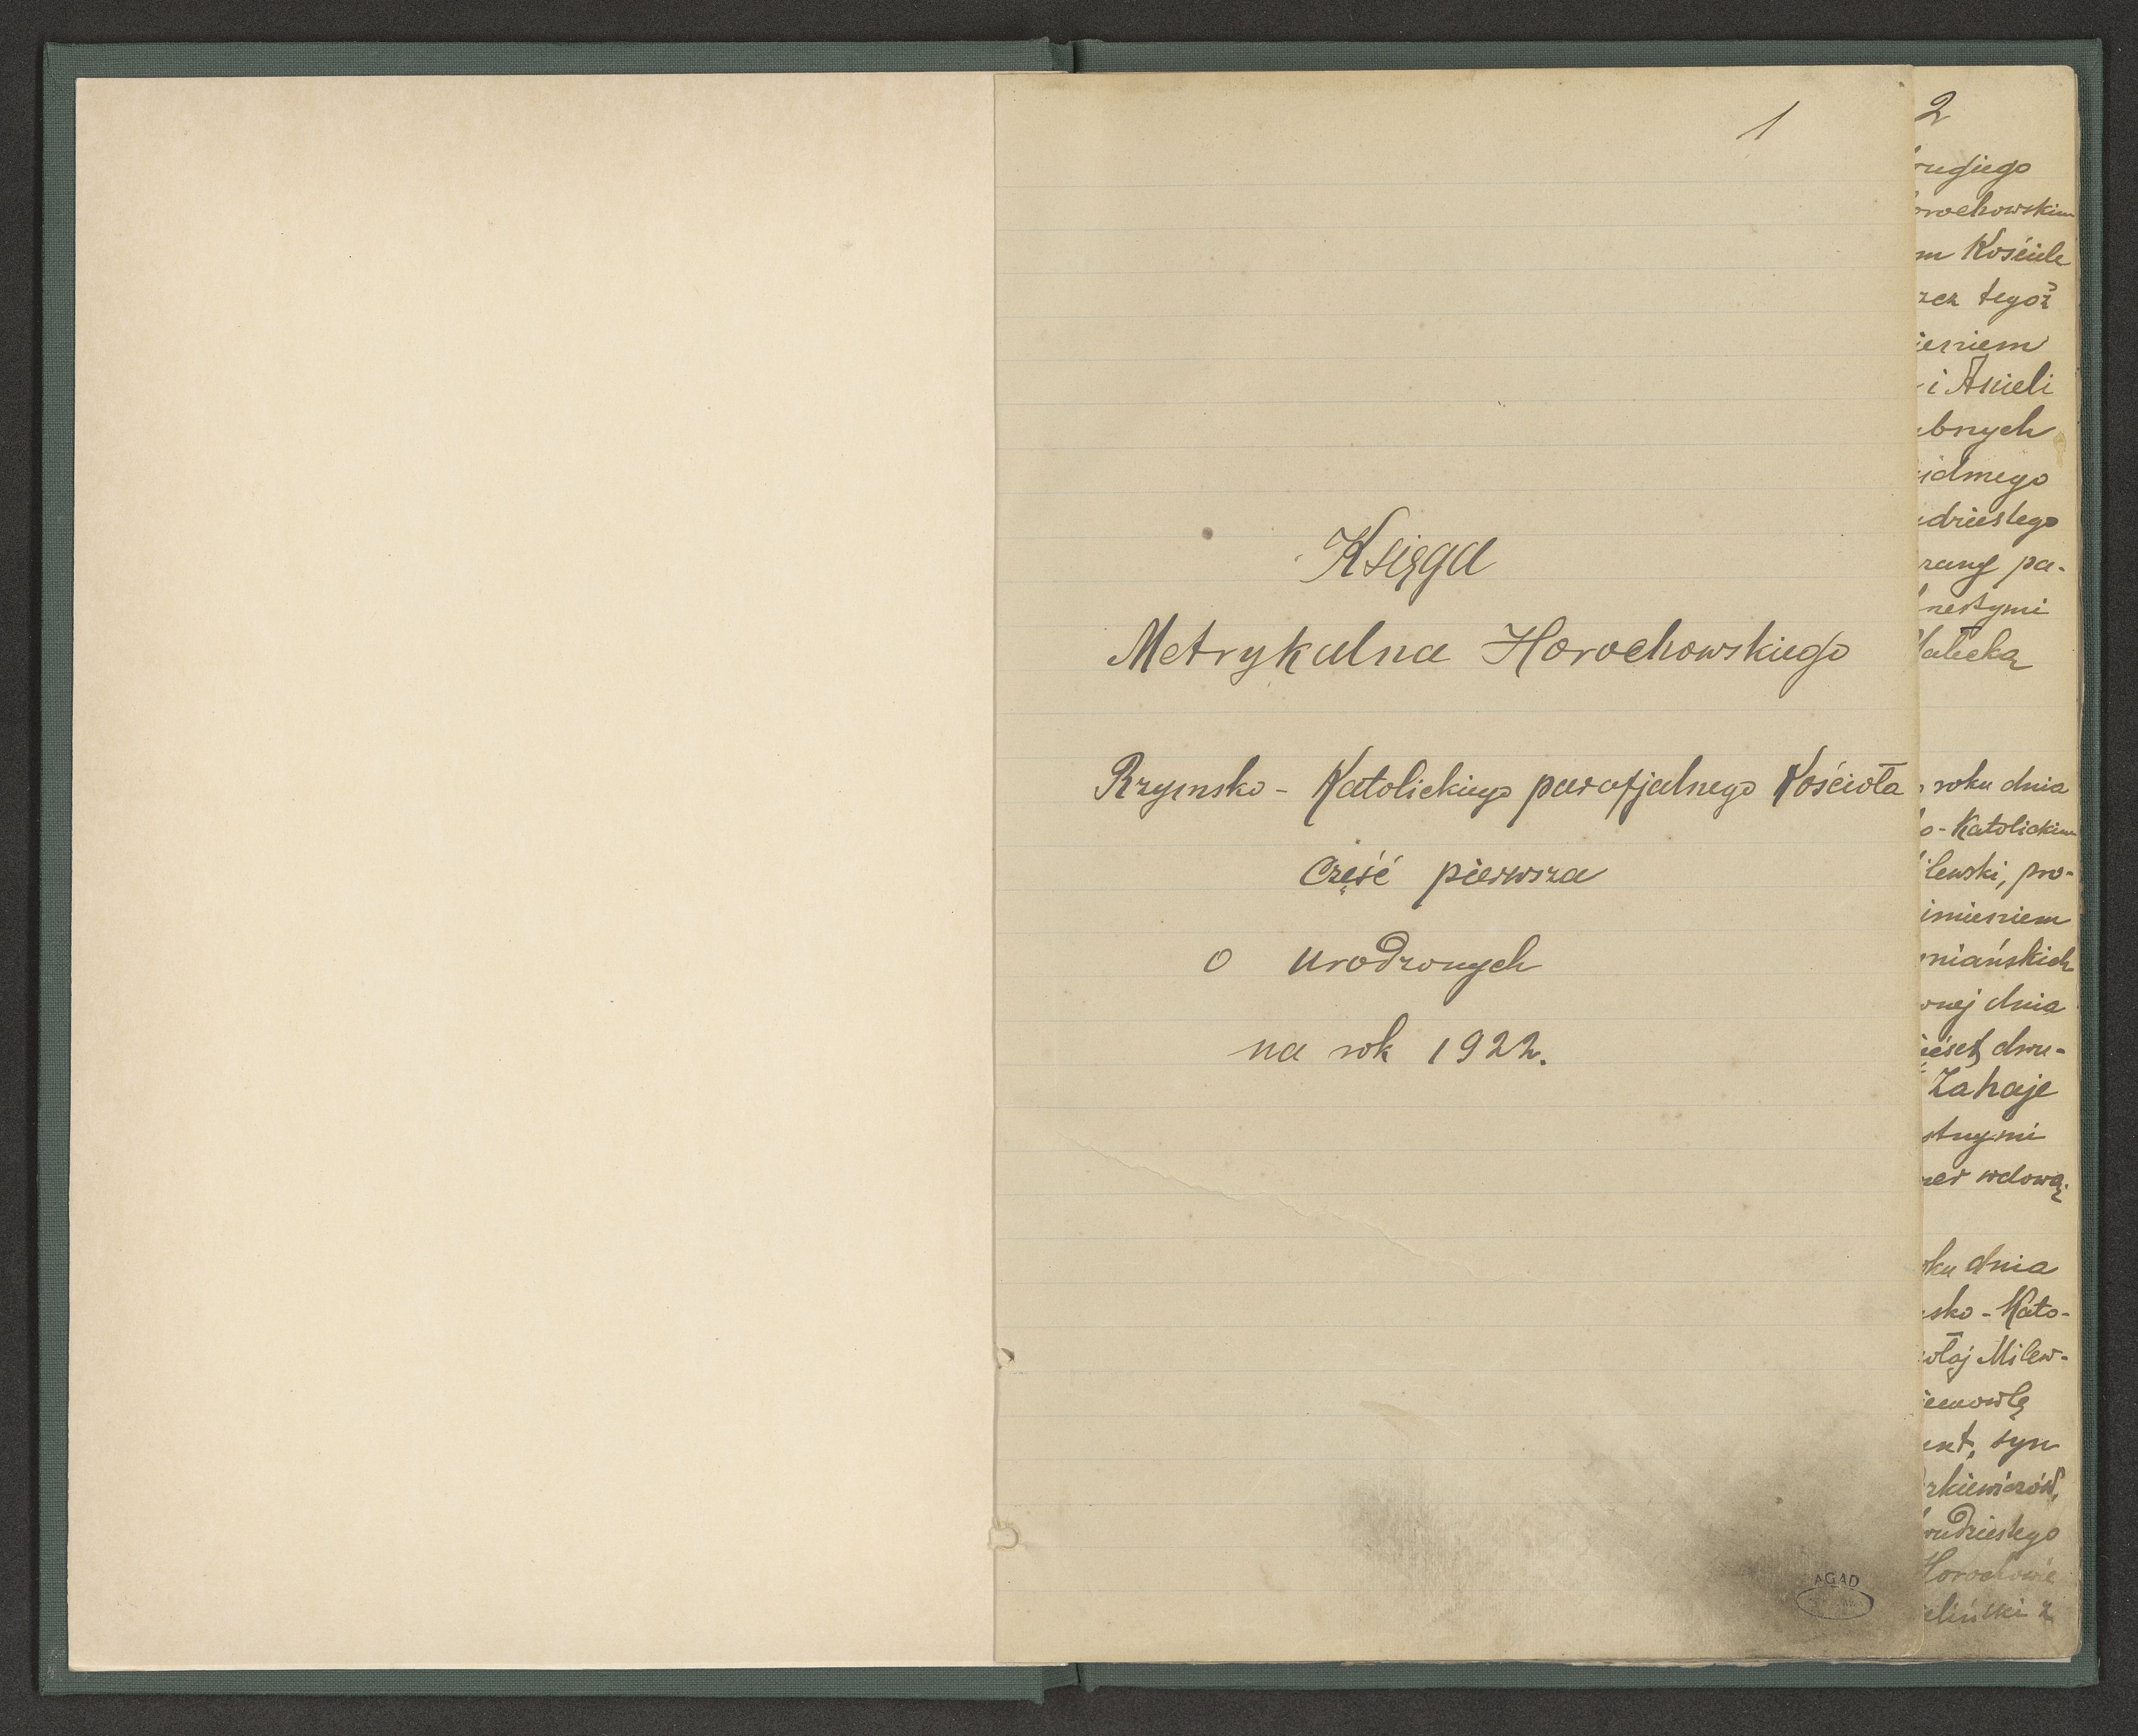 1
Księga
Metrykalna Horochowskiego
Rzymsko - Katolickiego parafjalnego Kościoła
Część pierwsza
o urodzonych
na rok 1922.
AGAD
2
rugiego
orochowskim
m Kościele
rzez tegoż
ieniem
i Anieli
ubnych
iódmego
dziestego
rany pa-
nestymi
alecką
roku dnia
o-Katolickim
ilewski, pro-
imieniem
niańskich
onej dnia
ięset dwu-
Zahaje
stnymi
ner wdową
oku dnia
sko-Kato-
ołaj Milew-
iemowlę
ent, syn
rkiewiczów,
wudziestego
Horochowie
eliński z